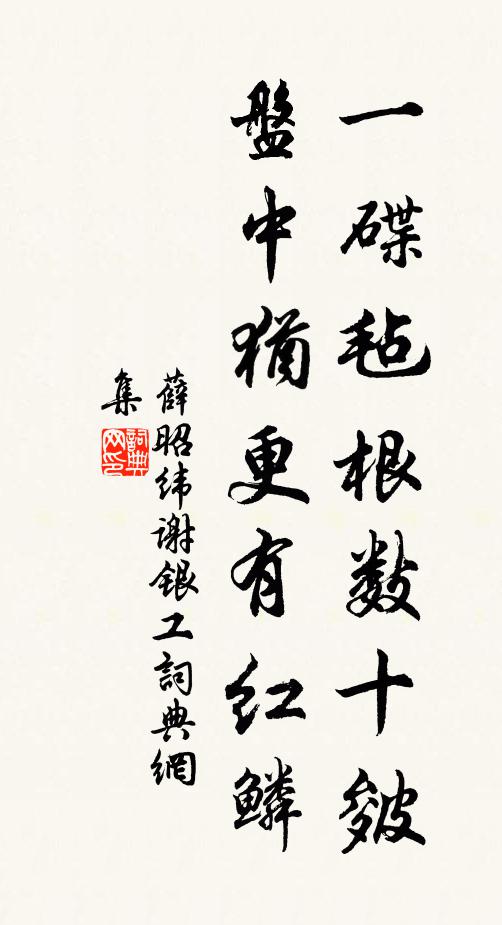 一碟毡根数十皴
盤中猶更有红鱗
薛昭纬谢银工詞典網
集
詞典
网印